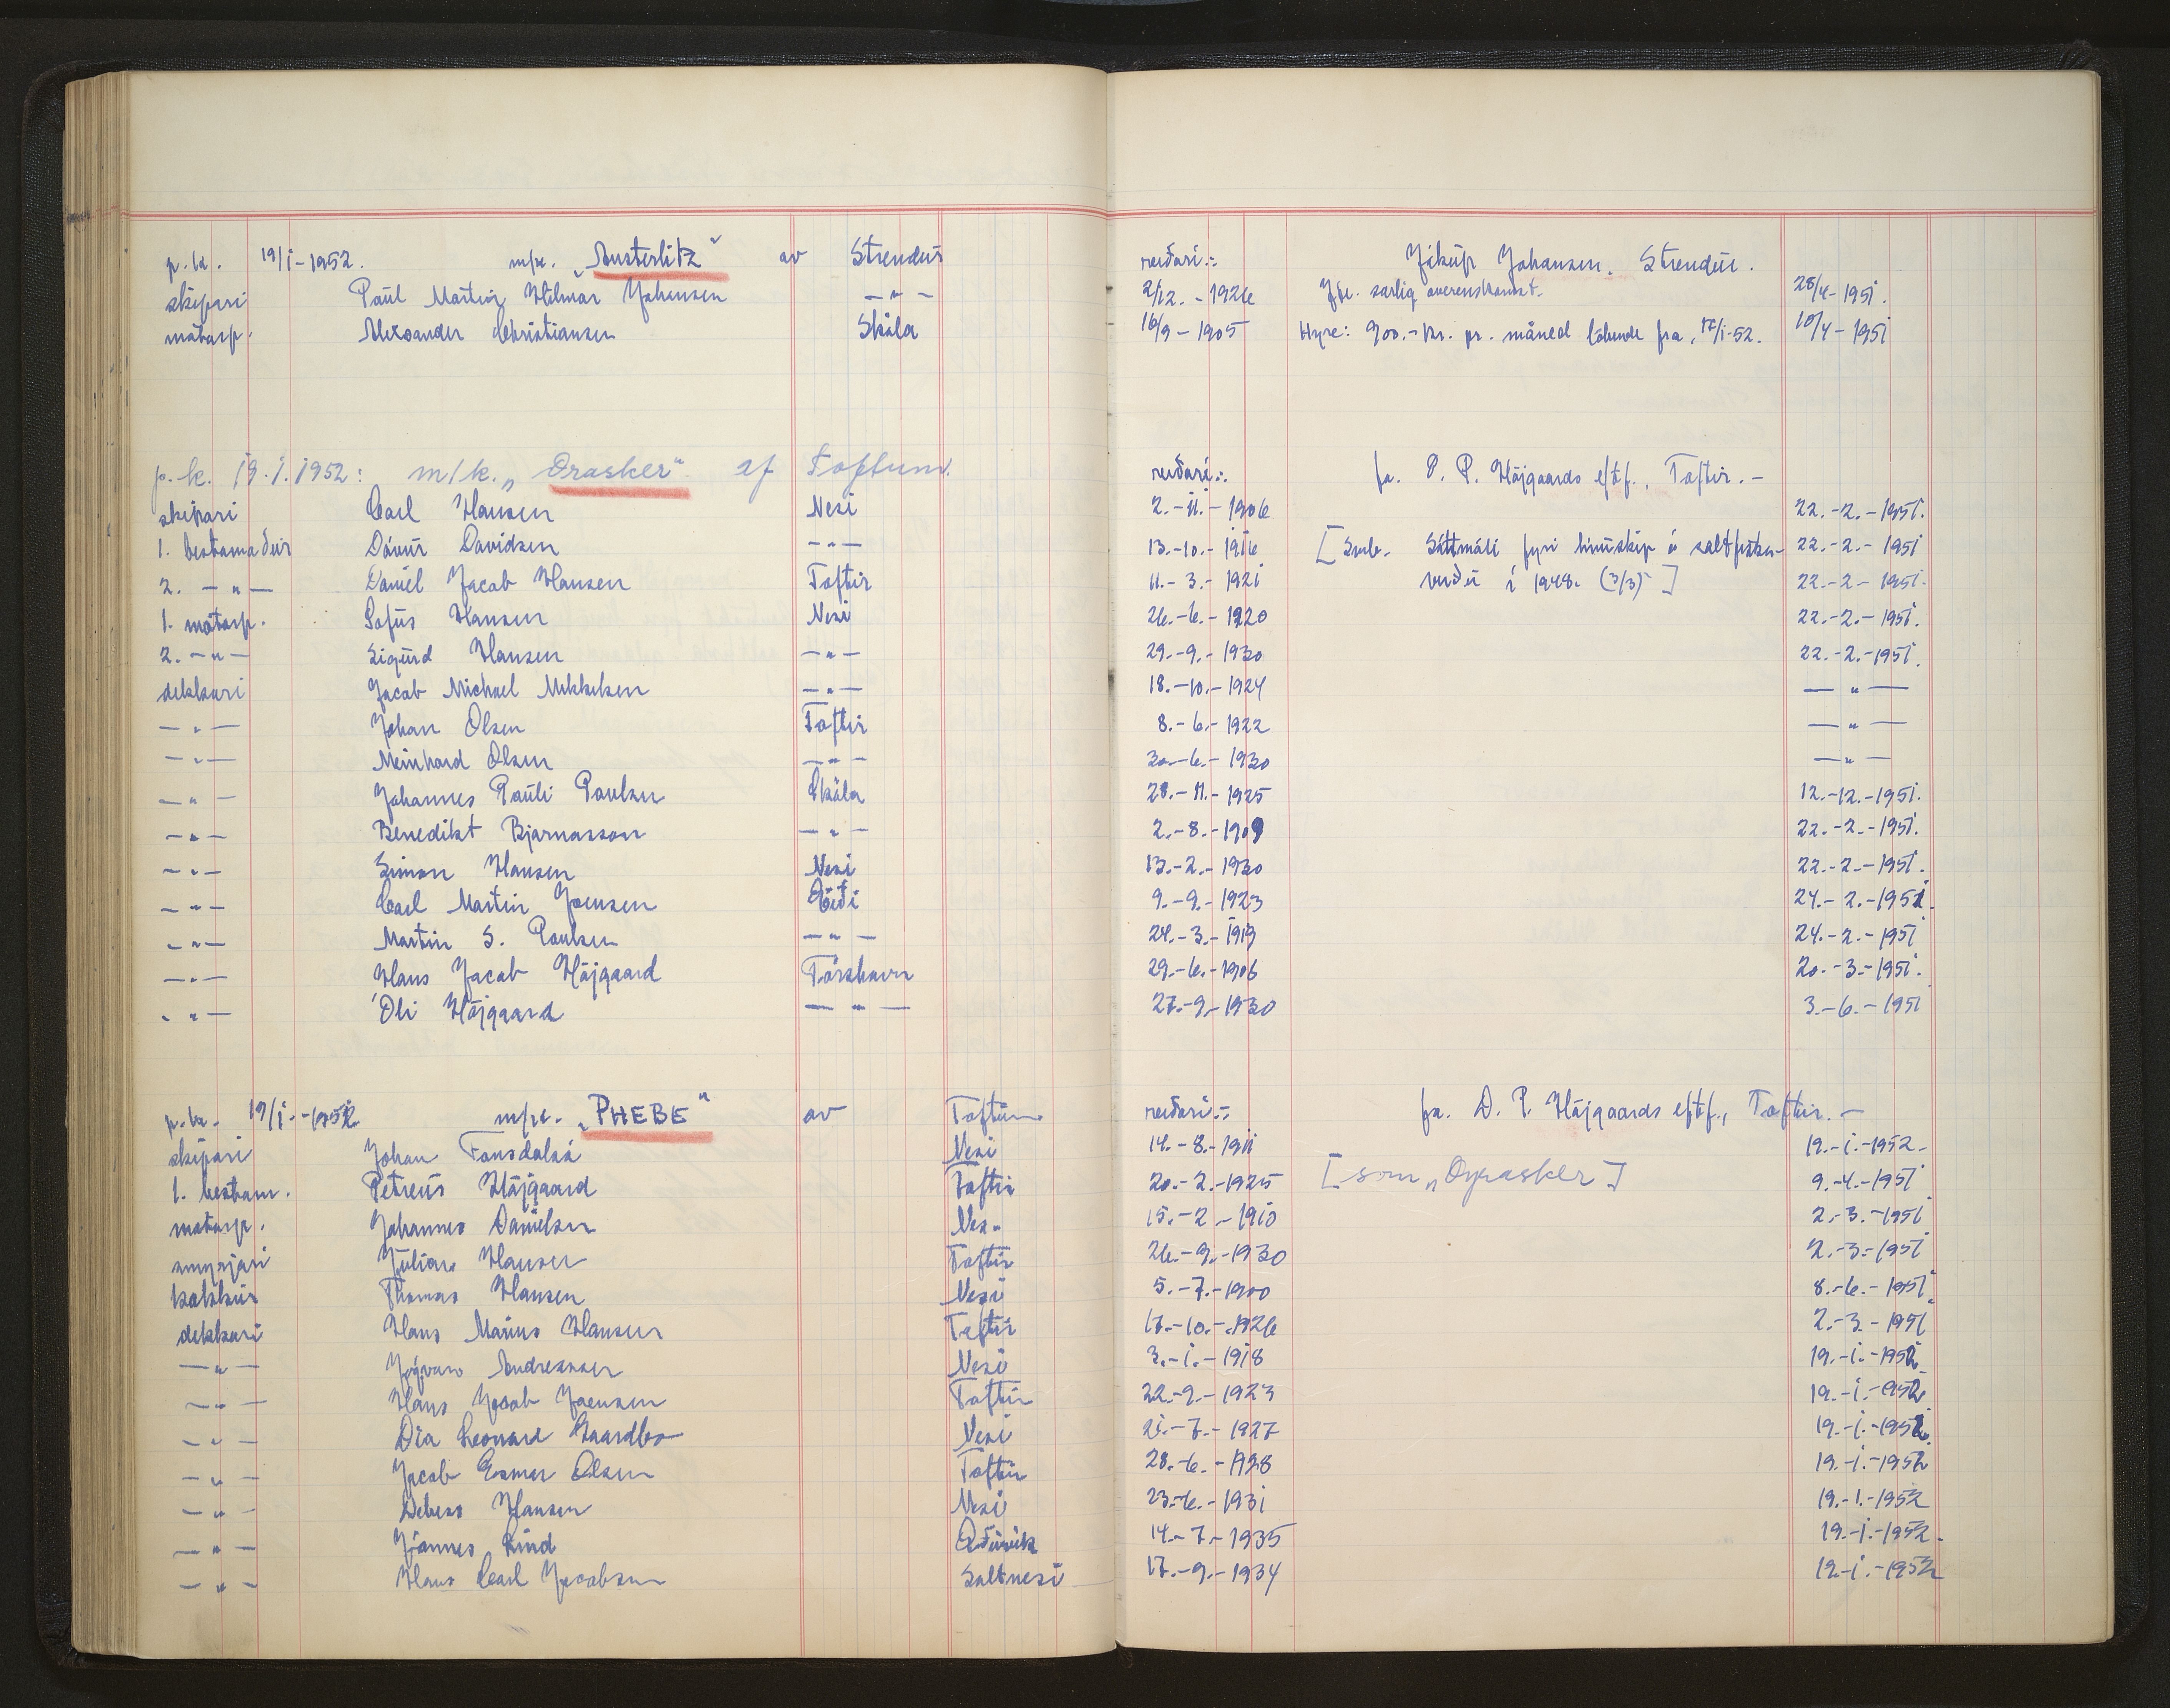 p.k. 19/1-1952. m/k. „Austerlitz" av Strendur reiðari:- Jákup Johansen, Strendur.
skipari Paul Martin Hilmar Johansen —"— 2/12.-1926 Jfr. særlig overenskomst. 28/4-1951.
mátasp. Alexander Christiansen Skála 16/9-1905 Hyre: 900.- kr. pr. måned løbende fra, 17/1-52. 10/4-1951
p.k. 19.1.1952: m/k. „Drasker" af Toftum. reiðari:. fa. D. P. Højgaards eftf., Toftir.-
skipari Carl Hansen Nesi 2.-11.-1906 22.-2.-1951.
1. bestamaður Dávur Davidsen —"— 13.-10.-1916 [Smb. Sáttmáli fyri línuskip á saltfiska- 22.-2.-1951
2. —"— Daniel Jacob Hansen Toftir 11.-3.-1921 veiðu í 1948. (3/3)] 22.-2-1951.
1. mátasp. Sofus Hansen Nesi 26.-6.-1920 22.-2.-1951.
2. —"— Sigurd Hansen —"— 29.-9.-1930 22.-2.-1951.
dekkari Jacob Michael Mikkelsen —"— 18.-10.-1924 —"—
—"— Johan Olsen Toftir 8.-6.-1922 —"—
—"— Meinhard Olsen —"— 30.-6.-1930 —"—
—"— Johannes Pauli Poulsen Skála 28.-11.-1925 12.-12.-1951.
—"— Benedikt Bjarnasson —"— 2.-8.-1909 22.-2.-1951.
—"— Simon Hansen Nesi 13.-2.-1930 22.-2.-1951.
—"— Carl Martin Joensen Eiði 9.-9.-1923 24.-2.-1951.
—"— Martin S. Poulsen —"— 24.-3.-1919 24.-2.-1951
—"— Hans Jacob Højgaard Tórshavn 29.-6.-1906 20.-3.-1951.
—"— Óli Højgaard —"— 27.-9.-1930 3.-6.-1951
p.k. 19/1.-1952 m/k. „PHEBE" av Toftum reiðari:- fa. D. P. Højgaards eftf., Toftir.-
skipari Johan Fonsdalsá Nesi 14.-8.-1911 19.-1.-1952.
1. bestam. Petreus Højgaard Toftir 20.-2.-1925 [som „Drasker] 9.-4.-1951
mátasp. Johannes Danielsen Nes. 15.-2.-1910 2.-3.-1951
smyrjari Julian Hansen Toftir 26.-9.-1930 2.-3.-1951
kokkur Thomas Hansen Nesi 5.-7.-1900 8.-6.-1951.
dekkari Hans Marius Hansen Toftir 17.-10.-1926 2.-3.-1951
—"— Jógvan Andreassen Nesi 3.-1.-1918 19.-1.-1952
—"— Hans Jacob Joensen Toftir 22.-9.-1923 19.-1.-1952
—"— Dia Leonard Gaardbo Nesi 21.-7.-1927 19.-1.-1952.
—"— Jacob Esmar Olsen Toftir 28.-6.-1928 19.-1.-1952
—"— Debess Hansen Nesi 23.-6.-1931 19.-1.-1952
—"— Jóannes Lind 14.-7.-1935 19.-1.-1952.
—"— Hans Carl Jacobsen Saltnesi 17.-9.-1934 19.-1.-1952